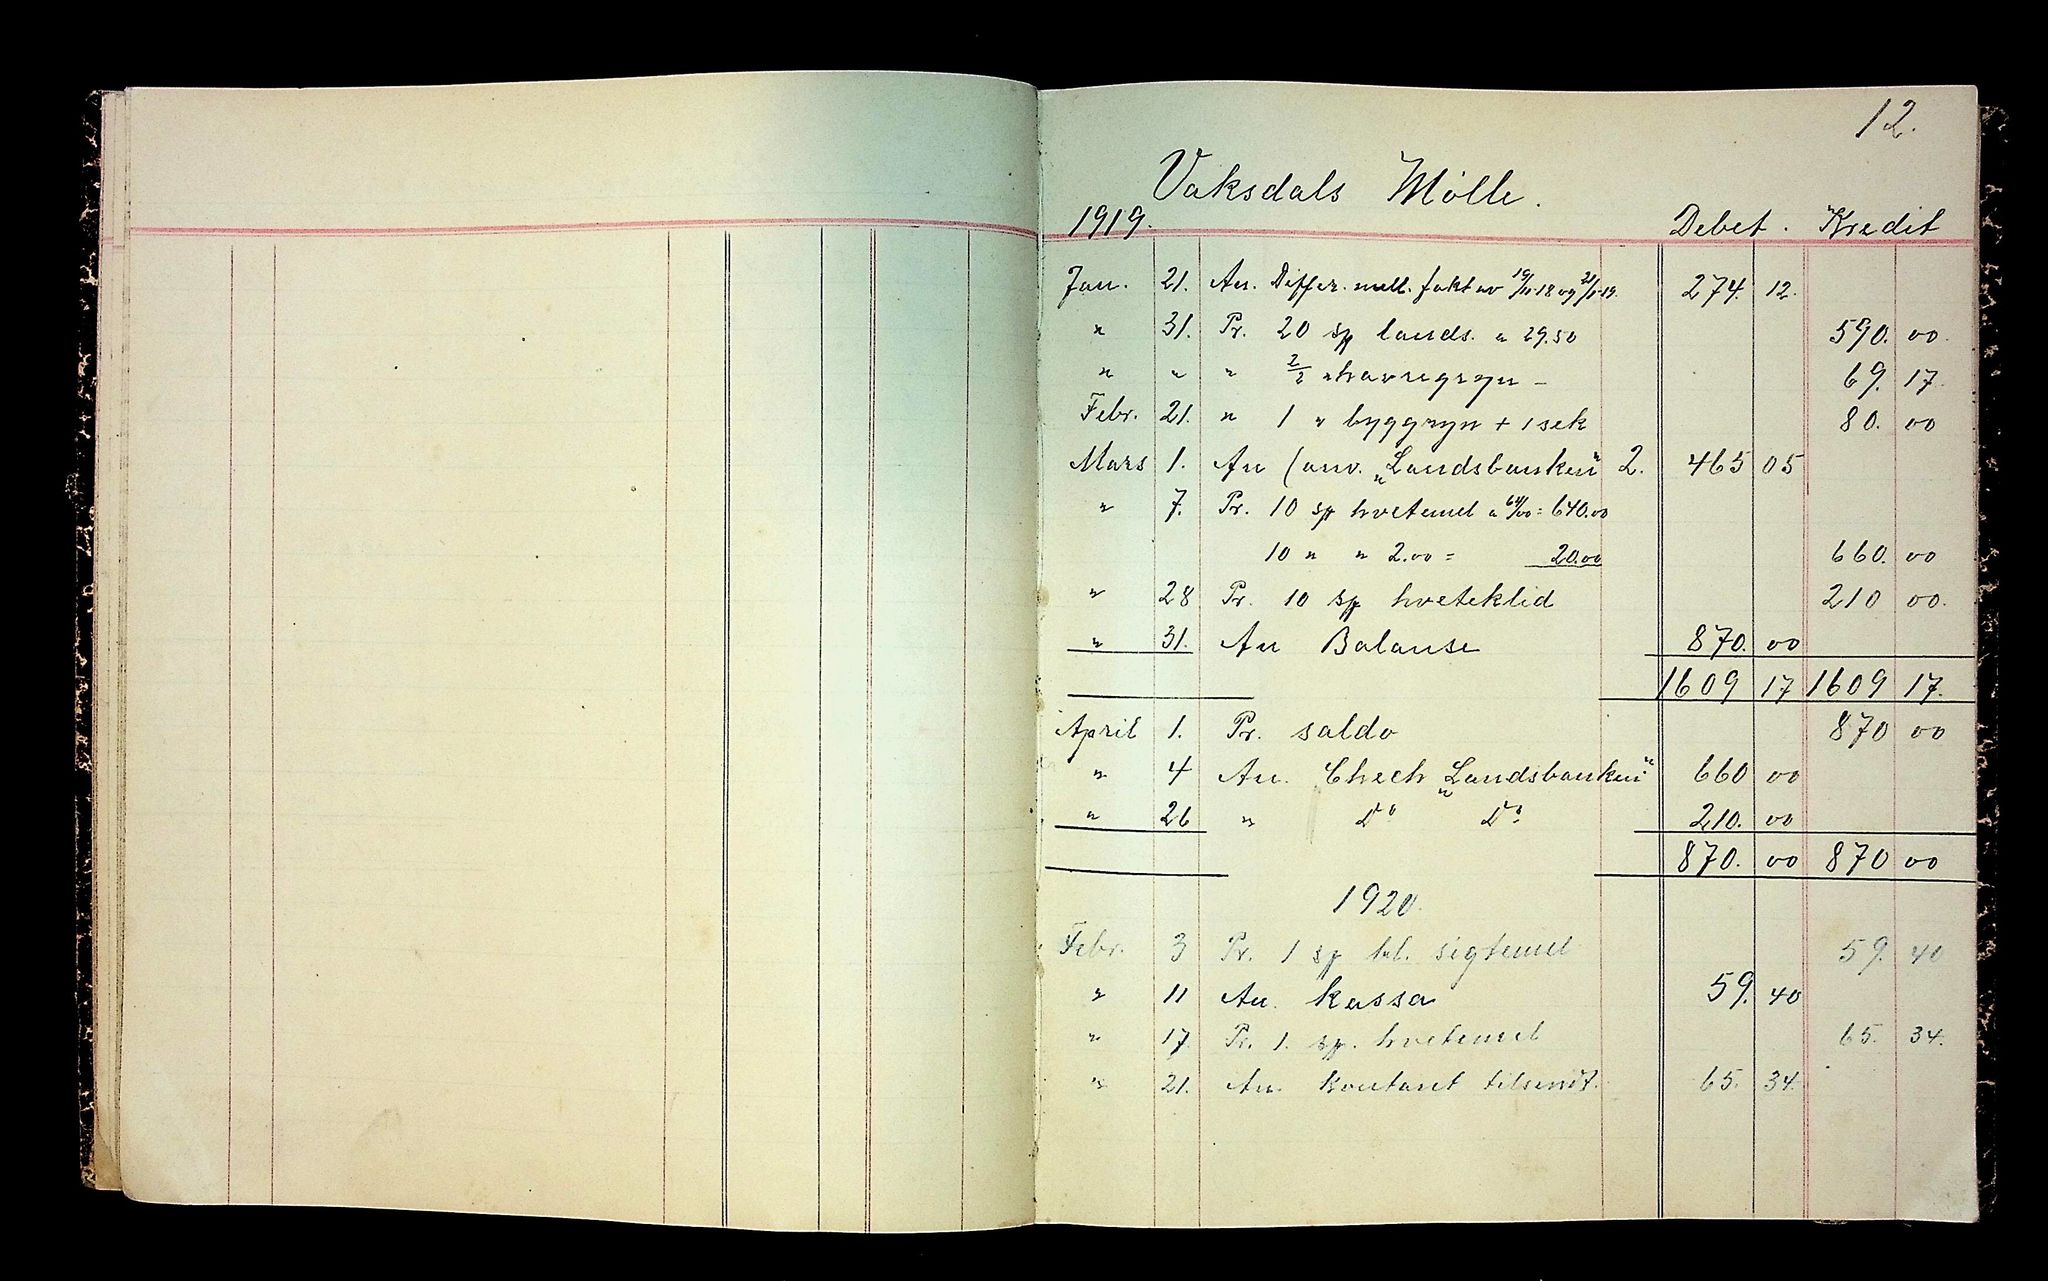 12.
Vaksdals Mølle.
1919. Debet. Kredit
Jan. 21. An. Differ. mell. fakt av 19/11-18 og 21/1-19. 274. 12.
" 31. Pr. 20 sp lands. a 29.50 590. 00.
" " " 2/2 " havregryn - 69. 17
Febr. 21. " 1 " byggryn + 1 sek 80. 00
Mars 1. An (anv. „Landsbanken" 2. 465 05
" 7. Pr. 10 sp hvetemel a 64/00 = 640.00
10 " " 2.00 = 20.00 660. 00
" 28 Pr. 10 sp hveteklid 210 00.
" 31. An Balanse 870. 00
1609 17 1609 17.
April 1. Pr. saldo 870 00
" 4 An. Chech „Landsbanken" 660 00
" 26 " Do Do 210. 00
870. 00 870 00
1920.
Febr. 3 Pr. 1 sp sigtemel 59. 40
" 11 An. Kassa 59. 40
" 17 Pr. 1. sp. hvetemel 65. 34.
" 21. An. Kontant tilsendt. 65. 34.